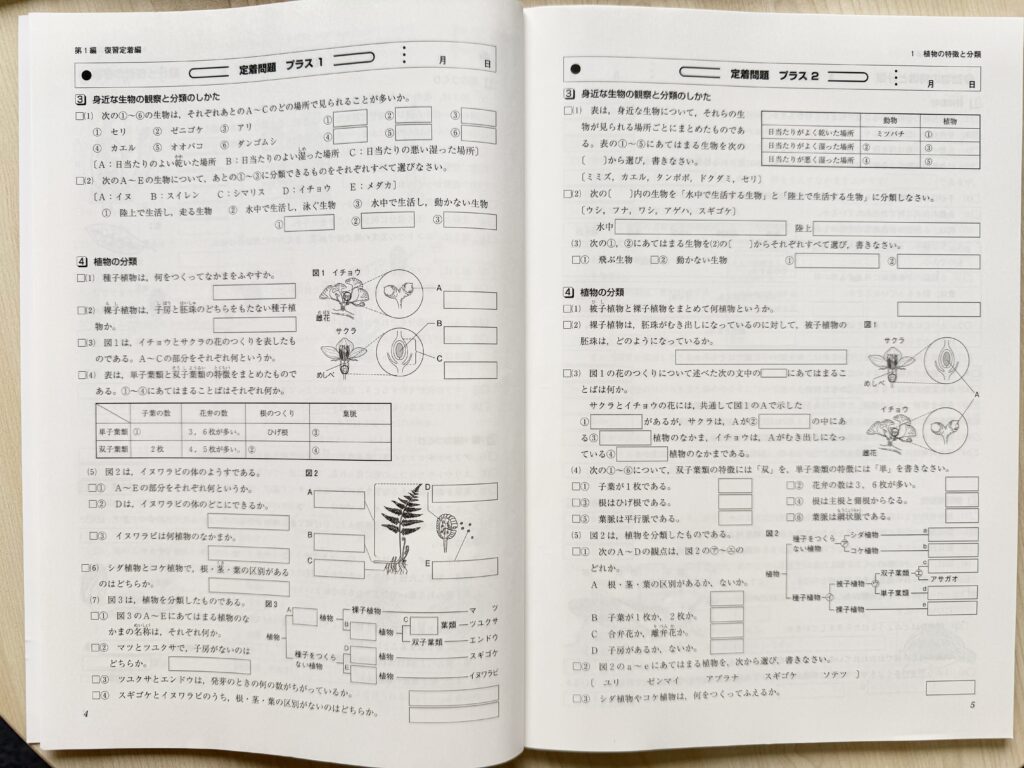 第1編 復習定着編
定着問題 プラス 1
月 日
3 身近な生物の観察と分類のしかた
□(1) 次の①〜⑥の生物は,それぞれあとのA〜Cのどの場所で見られることが多いか。
① セリ ② ゼニゴケ ③ アリ
④ カエル ⑤ オオバコ ⑥ ダンゴムシ
① ② ③
④ ⑤ ⑥
〔A:日当たりのよい乾いた場所 B:日当たりのよい湿った場所 C:日当たりの悪い湿った場所〕
□(2) 次のA〜Eの生物について,あとの①〜③に分類できるものをそれぞれすべて選びなさい。
〔A:イヌ B:スイレン C:シマリス D:イチョウ E:メダカ〕
① 陸上で生活し,走る生物 ② 水中で生活し,泳ぐ生物 ③ 水中で生活し,動かない生物
① ② ③
4 植物の分類
□(1) 種子植物は,何をつくってなかまをふやすか。
□(2) 裸子植物は,子房と胚珠のどちらをもたない種子植
物か。
□(3) 図1は,イチョウとサクラの花のつくりを表したも
のである。A〜Cの部分をそれぞれ何というか。
□(4) 表は,単子葉類と双子葉類の特徴をまとめたもので
ある。①〜④にあてはまることばはそれぞれ何か。
図1 イチョウ
雌花
サクラ
めしべ
A
B
C
子葉の数 花弁の数 根のつくり 葉脈
単子葉類 ① 3,6枚が多い。 ひげ根 ③
双子葉類 2枚 4,5枚が多い。 ② ④
(5) 図2は,イヌワラビの体のようすである。
□① A〜Eの部分をそれぞれ何というか。
□② Dは,イヌワラビの体のどこにできるか。
□③ イヌワラビは何植物のなかまか。
図2
A
B
C
D
E
□(6) シダ植物とコケ植物で,根・茎・葉の区別がある
のはどちらか。
(7) 図3は,植物を分類したものである。
□① 図3のA〜Eにあてはまる植物のな
かまの名称は,それぞれ何か。
□② マツとツユクサで,子房がないのは
どちらか。
□③ ツユクサとエンドウは,発芽のときの何の数がちがっているか。
□④ スギゴケとイヌワラビのうち,根・茎・葉の区別がないのはどちらか。
図3
植物
A 植物
裸子植物 マツ
B 植物
C 葉類 ツユクサ
双子葉類 エンドウ
種子をつくら
ない植物
D 植物 スギゴケ
E 植物 イヌワラビ
4
1 植物の特徴と分類
定着問題 プラス 2
月 日
3 身近な生物の観察と分類のしかた
□(1) 表は,身近な生物について,それらの生
物が見られる場所ごとにまとめたものであ
る。表の①〜⑤にあてはまる生物を次の
〔 〕から選び,書きなさい。
〔ミミズ,カエル,タンポポ,ドクダミ,セリ〕
動物 植物
日当たりがよく乾いた場所 ミツバチ ①
日当たりがよく湿った場所 ② ③
日当たりが悪く湿った場所 ④ ⑤
□(2) 次の〔 〕内の生物を「水中で生活する生物」と「陸上で生活する生物」に分類しなさい。
〔ウシ,フナ,ワシ,アゲハ,スギゴケ〕
水中 陸上
(3) 次の①,②にあてはまる生物を(2)の〔 〕からそれぞれすべて選び,書きなさい。
□① 飛ぶ生物 □② 動かない生物 ① ②
4 植物の分類
□(1) 被子植物と裸子植物をまとめて何植物というか。
□(2) 裸子植物は,胚珠がむき出しになっているのに対して,被子植物の
胚珠は,どのようになっているか。
□(3) 図1の花のつくりについて述べた次の文中の にあてはまるこ
とばは何か。
サクラとイチョウの花には,共通して図1のAで示した
① があるが,サクラは,Aが② の中にあ
る③ 植物のなかま,イチョウは,Aがむき出しになっ
ている④ 植物のなかまである。
図1
サクラ
めしべ
イチョウ
雌花
A
(4) 次の①〜⑥について,双子葉類の特徴には「双」を,単子葉類の特徴には「単」を書きなさい。
□① 子葉が1枚である。 □② 花弁の数は3,6枚が多い。
□③ 根はひげ根である。 □④ 根は主根と側根からなる。
□⑤ 葉脈は平行脈である。 □⑥ 葉脈は網状脈である。
(5) 図2は,植物を分類したものである。
□① 次のA〜Dの観点は,図2の㋐〜㋓の
どれか。
A 根・茎・葉の区別があるか,ないか。
B 子葉が1枚か,2枚か。
C 合弁花か,離弁花か。
D 子房があるか,ないか。
図2
植物
種子をつくら
ない植物
シダ植物 a
コケ植物 b
種子植物
被子植物
双子葉類 c
アサガオ
単子葉類 d
裸子植物 e
□② 図2のa〜eにあてはまる植物を,次から選び,書きなさい。
〔 ユリ ゼンマイ アブラナ スギゴケ ソテツ 〕
□③ シダ植物やコケ植物は,何をつくってふえるか。
5